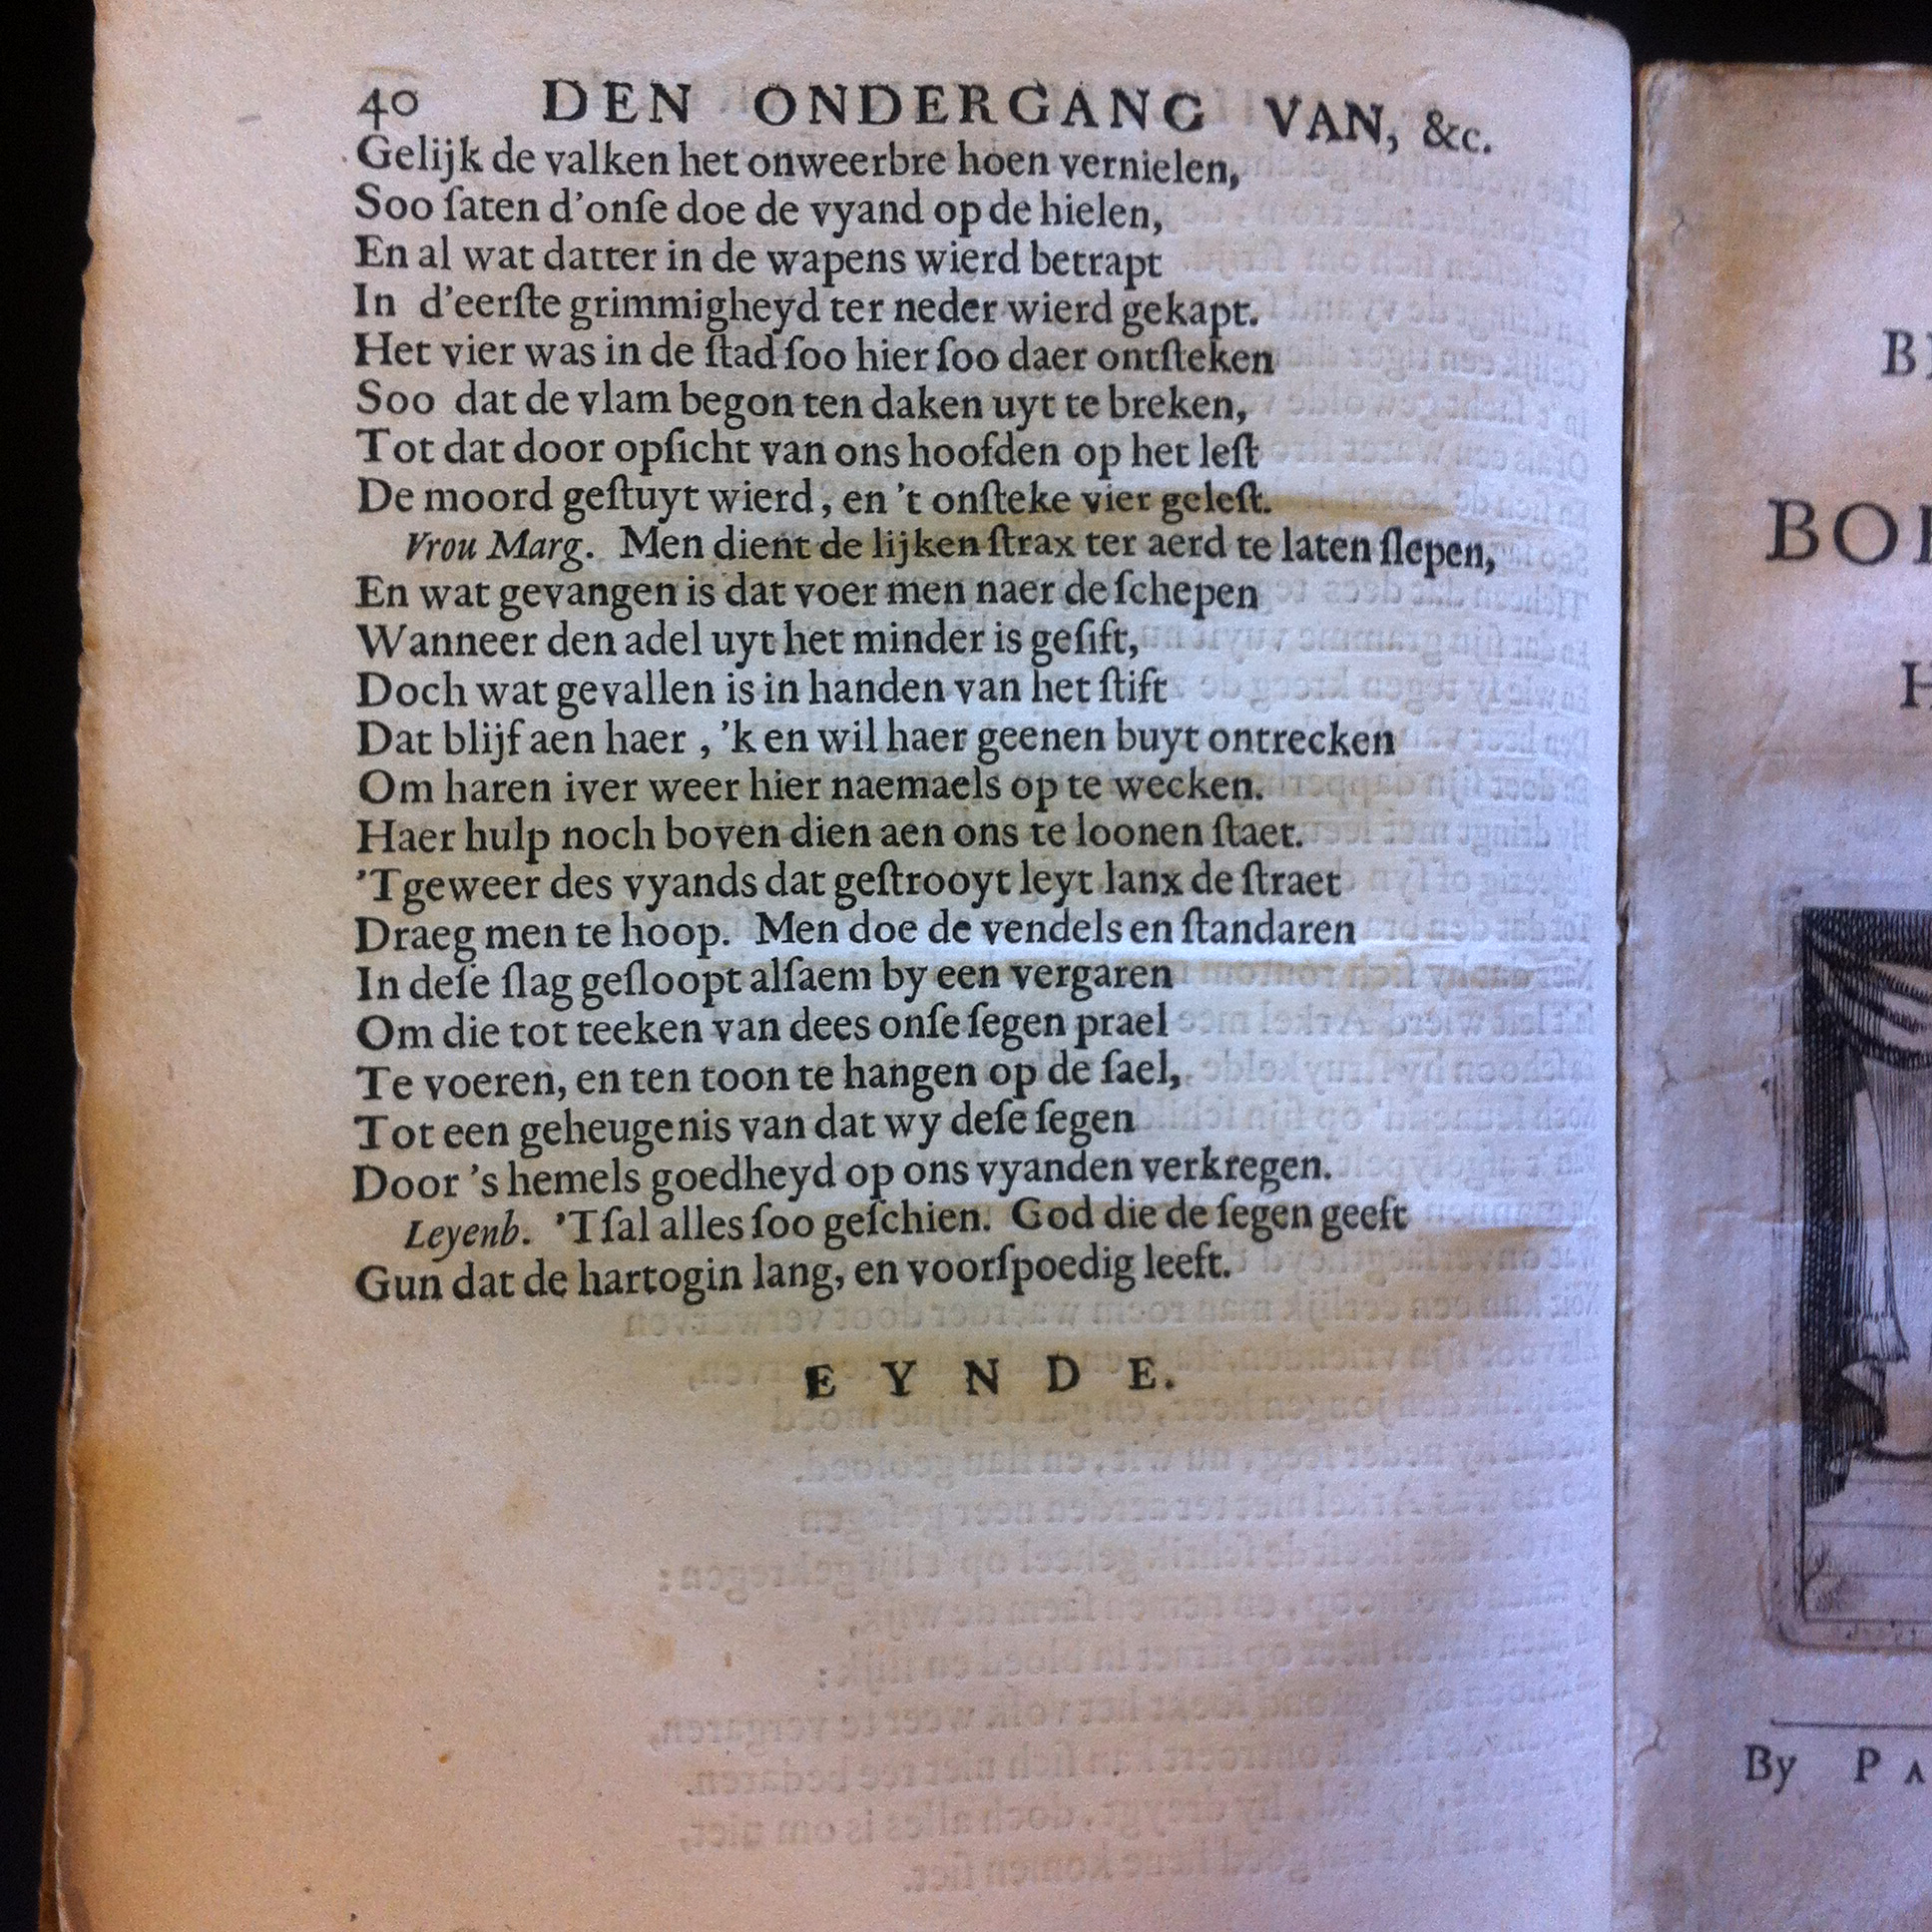 40 DEN ONDERGANG VAN, &c.
Gelijk de valken het onweerbre hoen vernielen,
Soo ſaten d'onſe doe de vyand op de hielen,
En al wat datter in de wapens wierd betrapt
In d'eerſte grimmigheyd ter neder wierd gekapt.
Het vier was in de ſtad ſoo hier ſoo daer ontſteken
Soo dat de vlam begon ten daken uyt te breken,
Tot dat door opſicht van ons hoofden op het leſt
De moord geſtuyt wierd, en 't onſteke vier geleſt.
Vrou Marg. Men dient de lijken ſtrax ter aerd te laten ſlepen,
En wat gevangen is dat voer men naer de ſchepen
Wanneer den adel uyt het minder is geſift,
Doch wat gevallen is in handen van het ſtift
Dat blijf aen haer, 'k en wil haer geenen buyt ontrecken
Om haren iver weer hier naemaels op te wecken.
Haer hulp noch boven dien aen ons te loonen ſtaet.
'T geweer des vyands dat geſtrooyt leyt lanx de ſtraet
Draeg men te hoop. Men doe de vendels en ſtandaren
In deſe ſlag geſloopt alſaem by een vergaren
Om die tot teeken van dees onſe ſegen prael
Te voeren, en ten toon te hangen op de ſael,
Tot een geheugenis van dat wy deſe ſegen
Door 's hemels goedheyd op ons vyanden verkregen.
Leyenb. 'T ſal alles ſoo geſchien. God die de ſegen geeft
Gun dat de hartogin lang, en voorſpoedig leeft.
EYNDE.
By